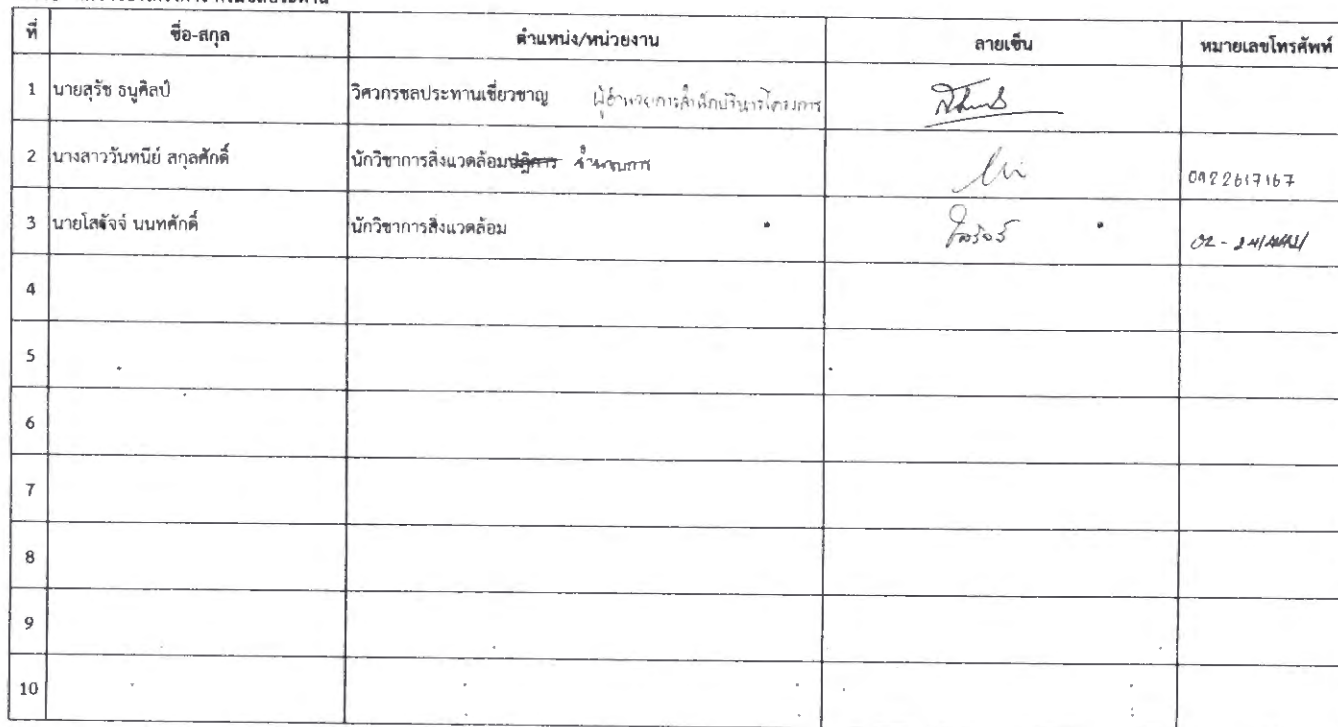 ที่ ชื่อ-สกุล ตำแหน่ง/หน่วยงาน ลายเซ็น หมายเลขโทรศัพท์
1 นายสุรัช ธนูศิลป์ วิศวกรชลประทานเชี่ยวชาญ ผู้อำนวยการสำนักบริหารโครงการ
2 นางสาววันทนีย์ สกุลศักดิ์ นักวิชาการสิ่งแวดล้อมปฏิการ ชำนาญการ 0922617167
3 นายโสรัจจ์ นนทศักดิ์ นักวิชาการสิ่งแวดล้อม โสรัจจ์ 02-
4
5
6
7
8
9
10